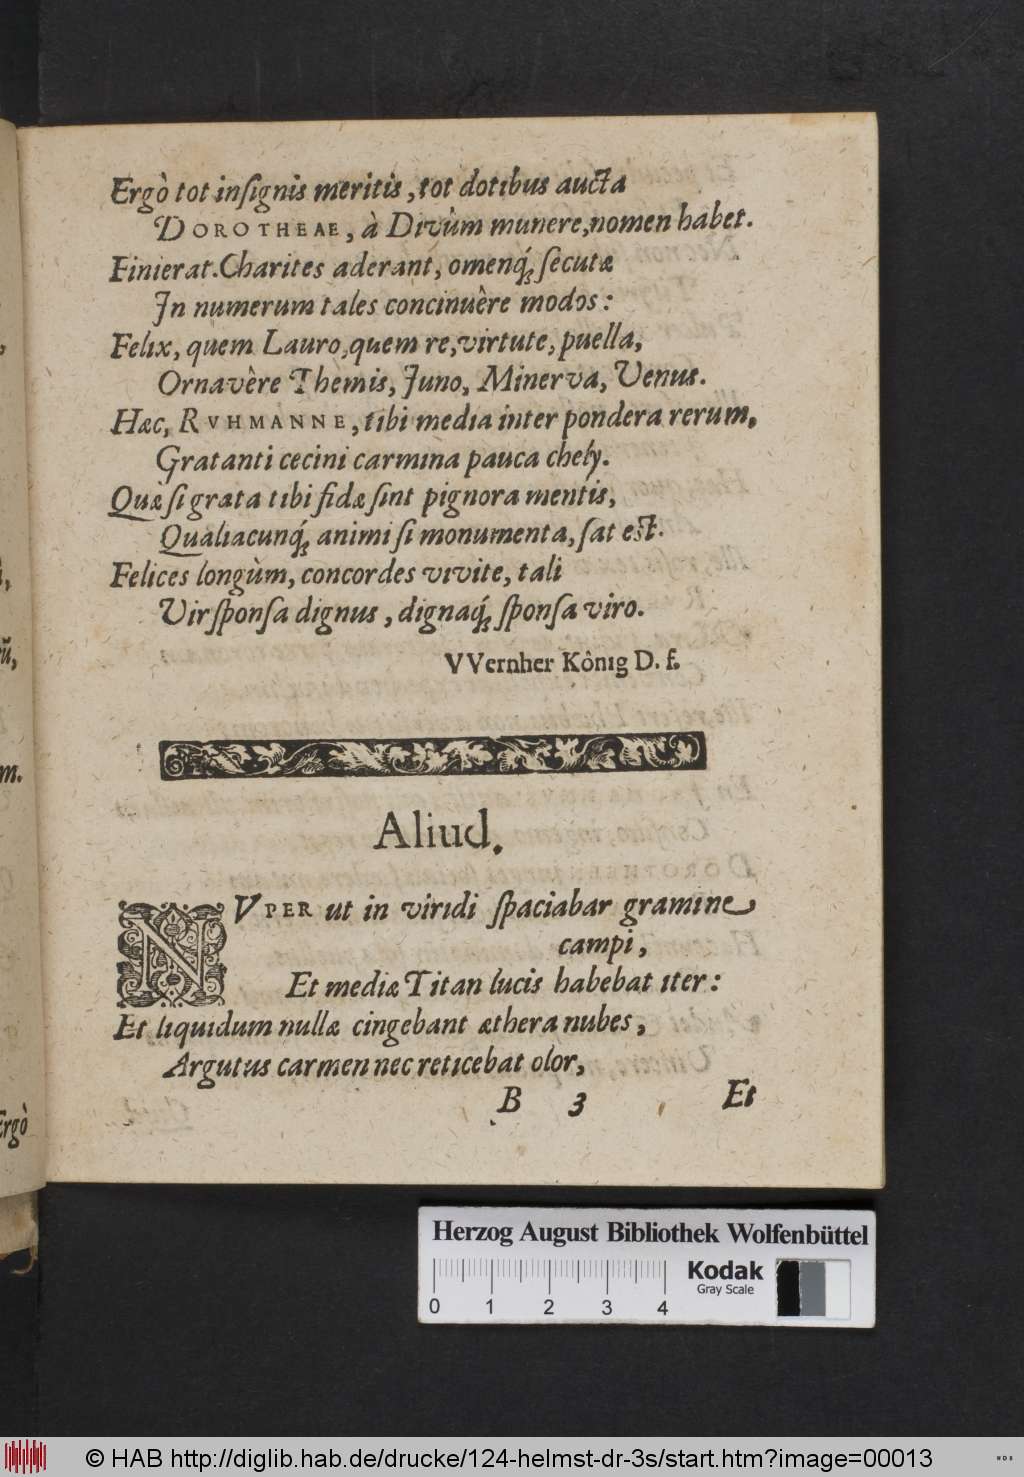 Ergò tot insignis meritis, tot dotibus aucta
DOROTHEAE, à Divûm munere, nomen habet.
Finierat. Charites aderant, omenq́; secutæ
In numerum tales concinuêre modos:
Felix, quem Lauro, quem re, virtute, puella,
Ornavêre Themis, Juno, Minerva, Venus.
Hæc, RVHMANNE, tibi media inter pondera rerum,
Gratanti cecini carmina pauca chely.
Quæ si grata tibi fidæ sint pignora mentis,
Qualiacunq́; animi si monumenta, sat est.
Felices longùm, concordes vivite, tali
Vir sponsa dignus, dignaq́; sponsa viro.
VVernher Kônig D. f.
Aliud.
NUPER ut in viridi spaciabar gramine
campi,
Et mediæ Titan lucis habebat iter:
Et liquidum nullæ cingebant æthera nubes,
Argutus carmen nec reticebat olor,
B 3 Et
ũ,
m.
Ergò
Herzog August Bibliothek Wolfenbüttel
Kodak
Gray Scale
0 1 2 3 4
© HAB http://diglib.hab.de/drucke/124-helmst-dr-3s/start.htm?image=00013